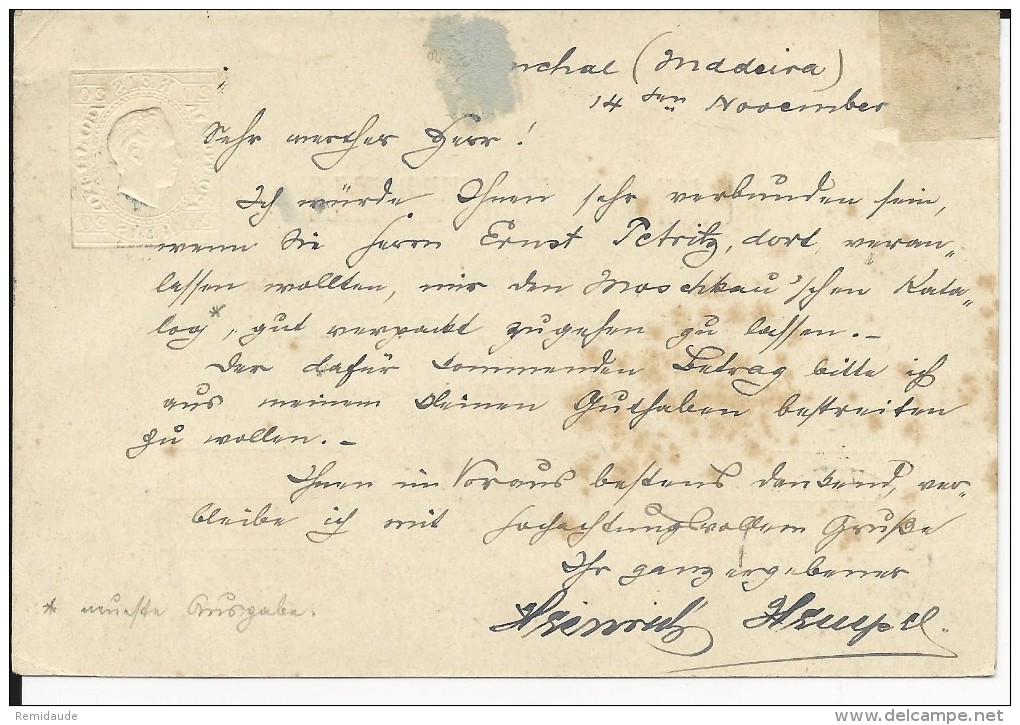 nchal (Madeira)
14ten November
Sehr werther Herr!
Ich würde Ihnen sehr verbunden sein,
wenn Sie Herrn Ernst Petritz, dort, veran-
lassen wollten, mir den Moschkau'schen Kata-
log*, gut verpackt zugehen zu lassen.-
Der dafür kommenden Betrag bitte ich
aus meinem kleinen Guthaben bestreiten
zu wollen.-
Ihnen im Voraus bestens dankend, ver-
bleibe ich mit hochachtungsvollem Gruße
Ihr ganz ergebener
* neueste Ausgabe.
Heinrich Hempel.
Remidaude
www.delcampe.net